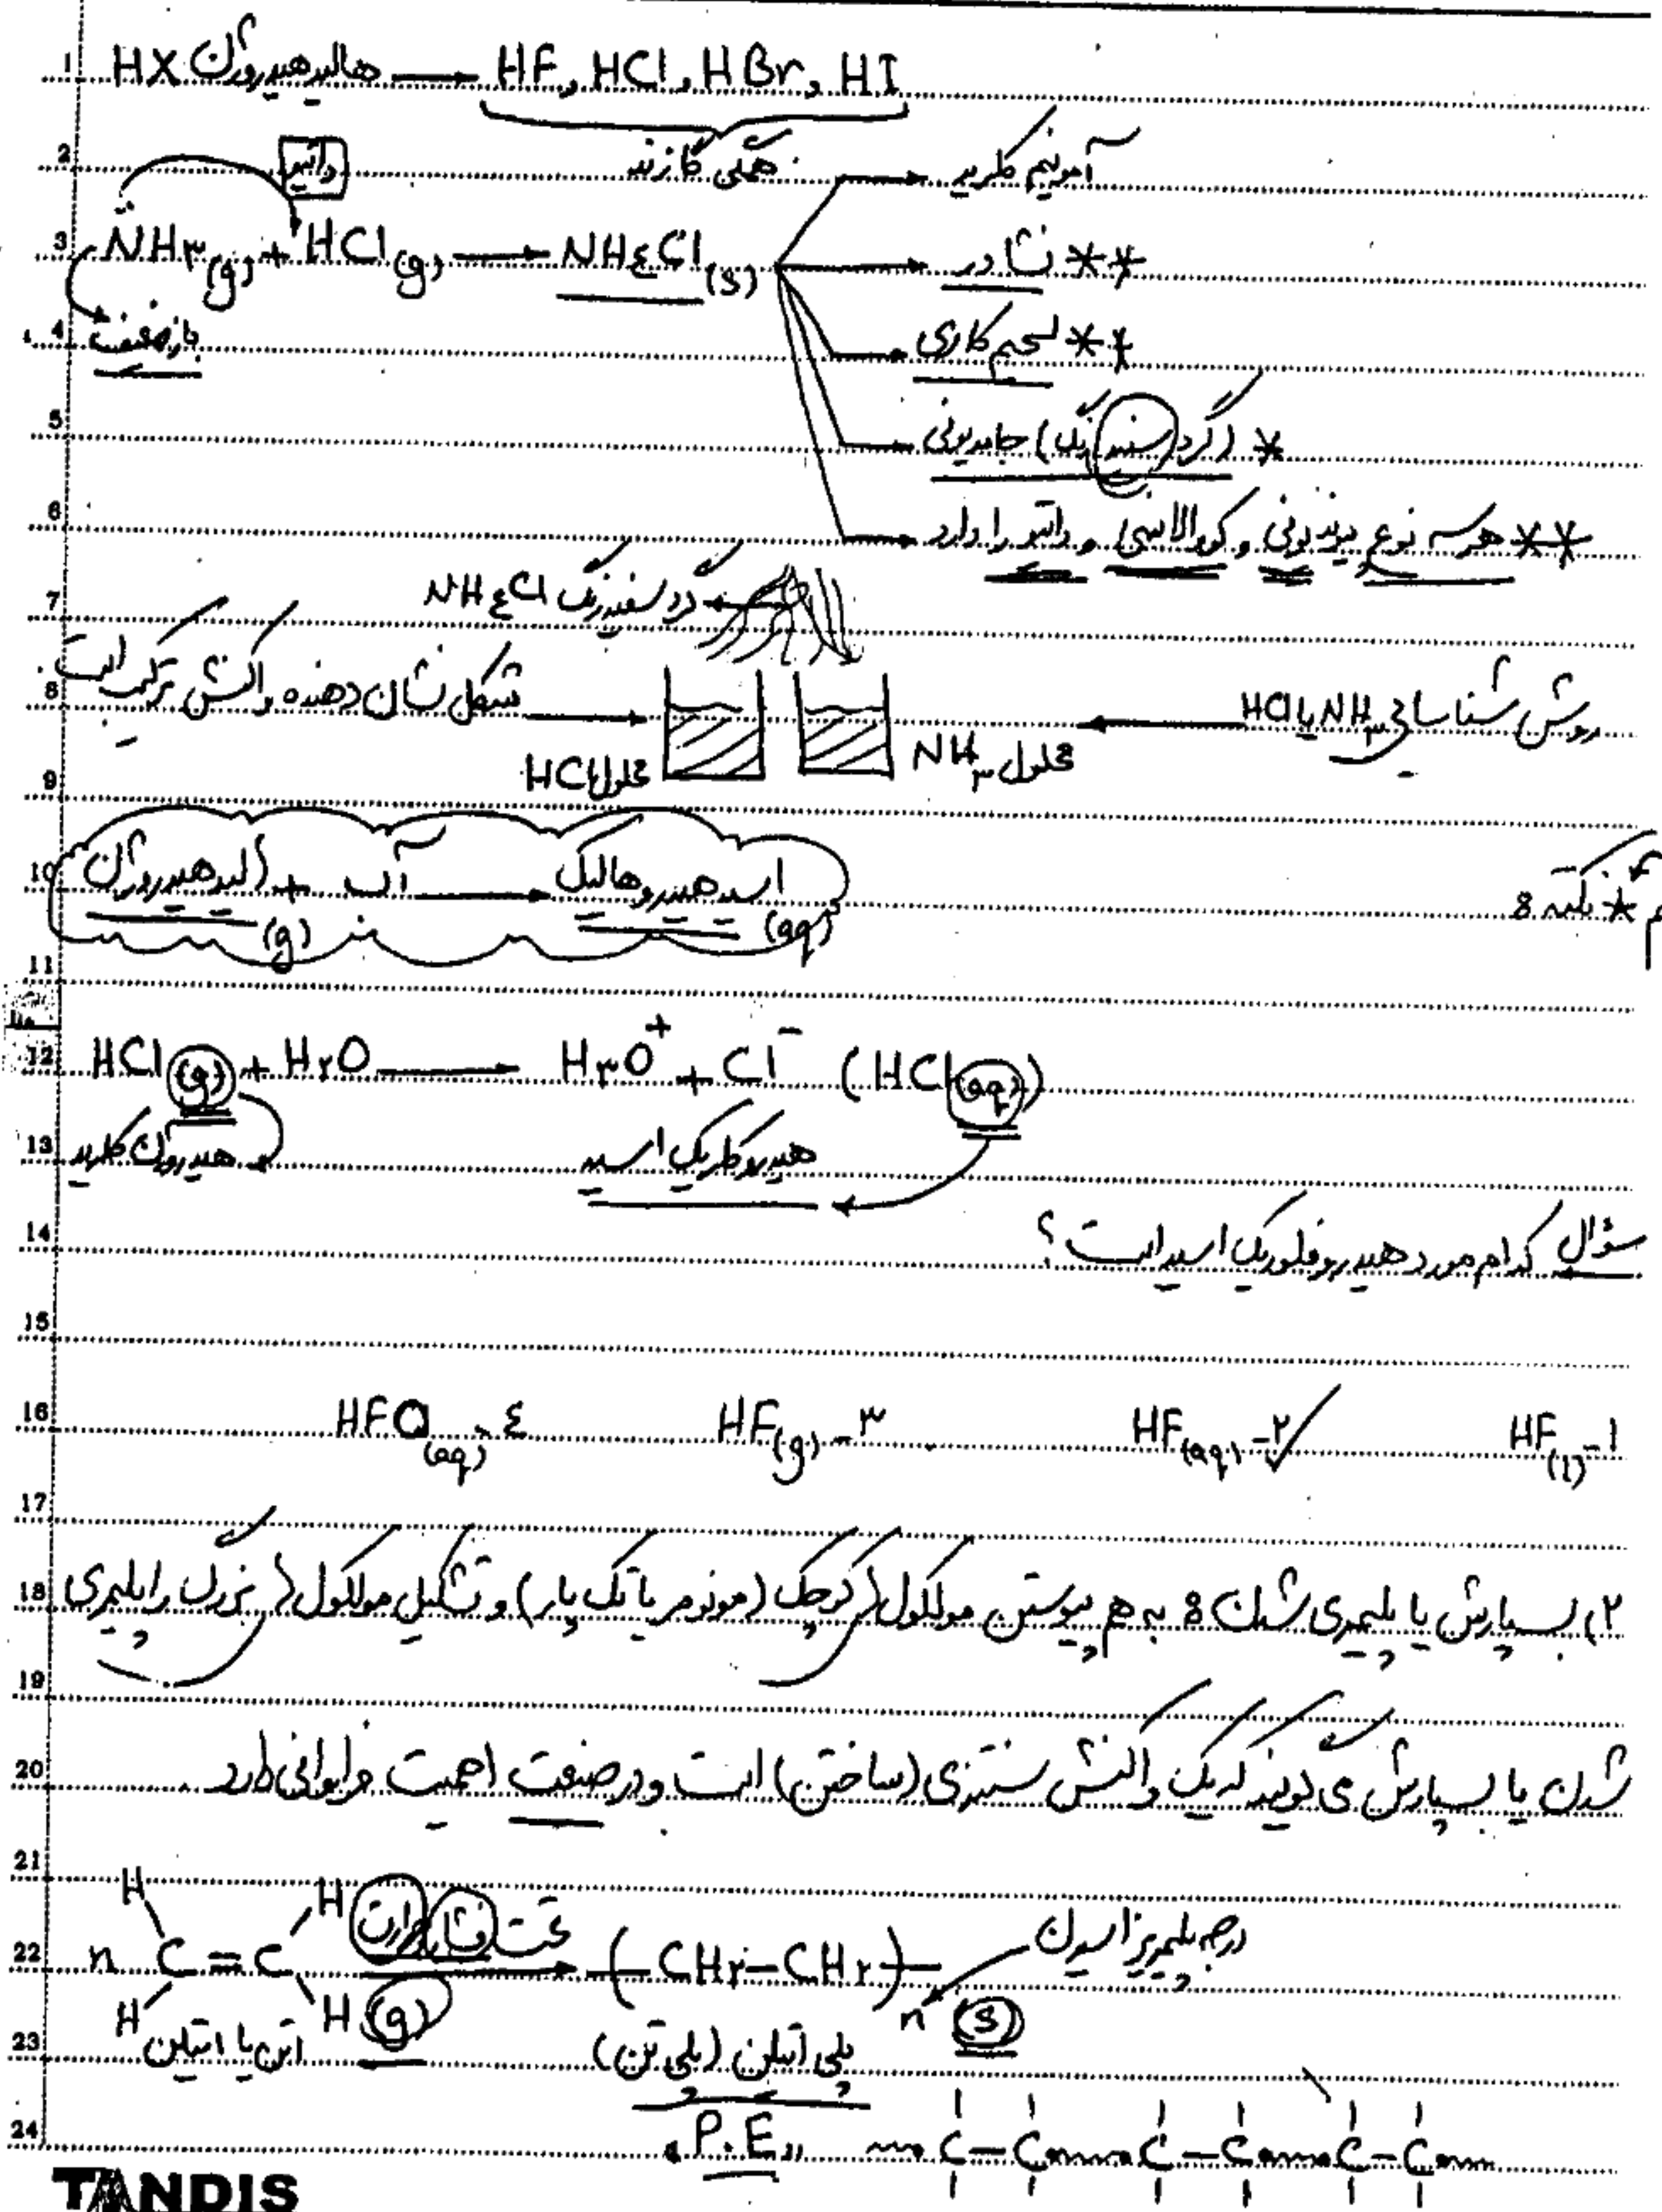 1 HX هالید هیدروژن → HF, HCl, HBr, HI
2 داتیو همگی گازند آمونیم کلرید
3 NH۳(g) + HCl(g) → NH٤Cl(s) نشادر **
4 باز ضعیف لحیم کاری **
5 * (گرد سفید رنگ) جامد یونی
6 ** هر سه نوع پیوند یونی و کووالانسی و داتیو را دارد
7 گرد سفید رنگ NH٤Cl
8 روش شناسایی NH۳ یا HCl شکل نشان دهنده واکنش ترکیب است
محلول NH۳ محلول HCl
9
10 * نکته 8 هالید هیدروژن (g) + آب → اسید هیدروهالیک (aq)
11
12 HCl(g) + H۲O → H۳O+ + Cl− (HCl(aq))
13 هیدروژن کلرید هیدروکلریک اسید
14 سؤال کدام مورد هیدروفلوریک اسید است؟
15
16 HF(l) -۱ HF(aq) -۲ HF(g) -۳ HFO(aq) -٤
17
18 ۲) بسپارش یا پلیمری شدن 8 به هم پیوستن مولکول های کوچک (مونومر یا تک پار) و تشکیل مولکول های بزرگ را پلیمری
19
20 شدن یا بسپارش می گویند که یک واکنش سنتزی (ساختن) است و در صنعت اهمیت فراوانی دارد
21 H H
22 n C = C تحت فشار و حرارت → (CH۲ – CH۲)n (s) درجه پلیمریزاسیون
H H (g)
23 اتن یا اتیلن پلی اتیلن (پلی تن)
24 «P.E» C – C C – C C – C
TANDIS